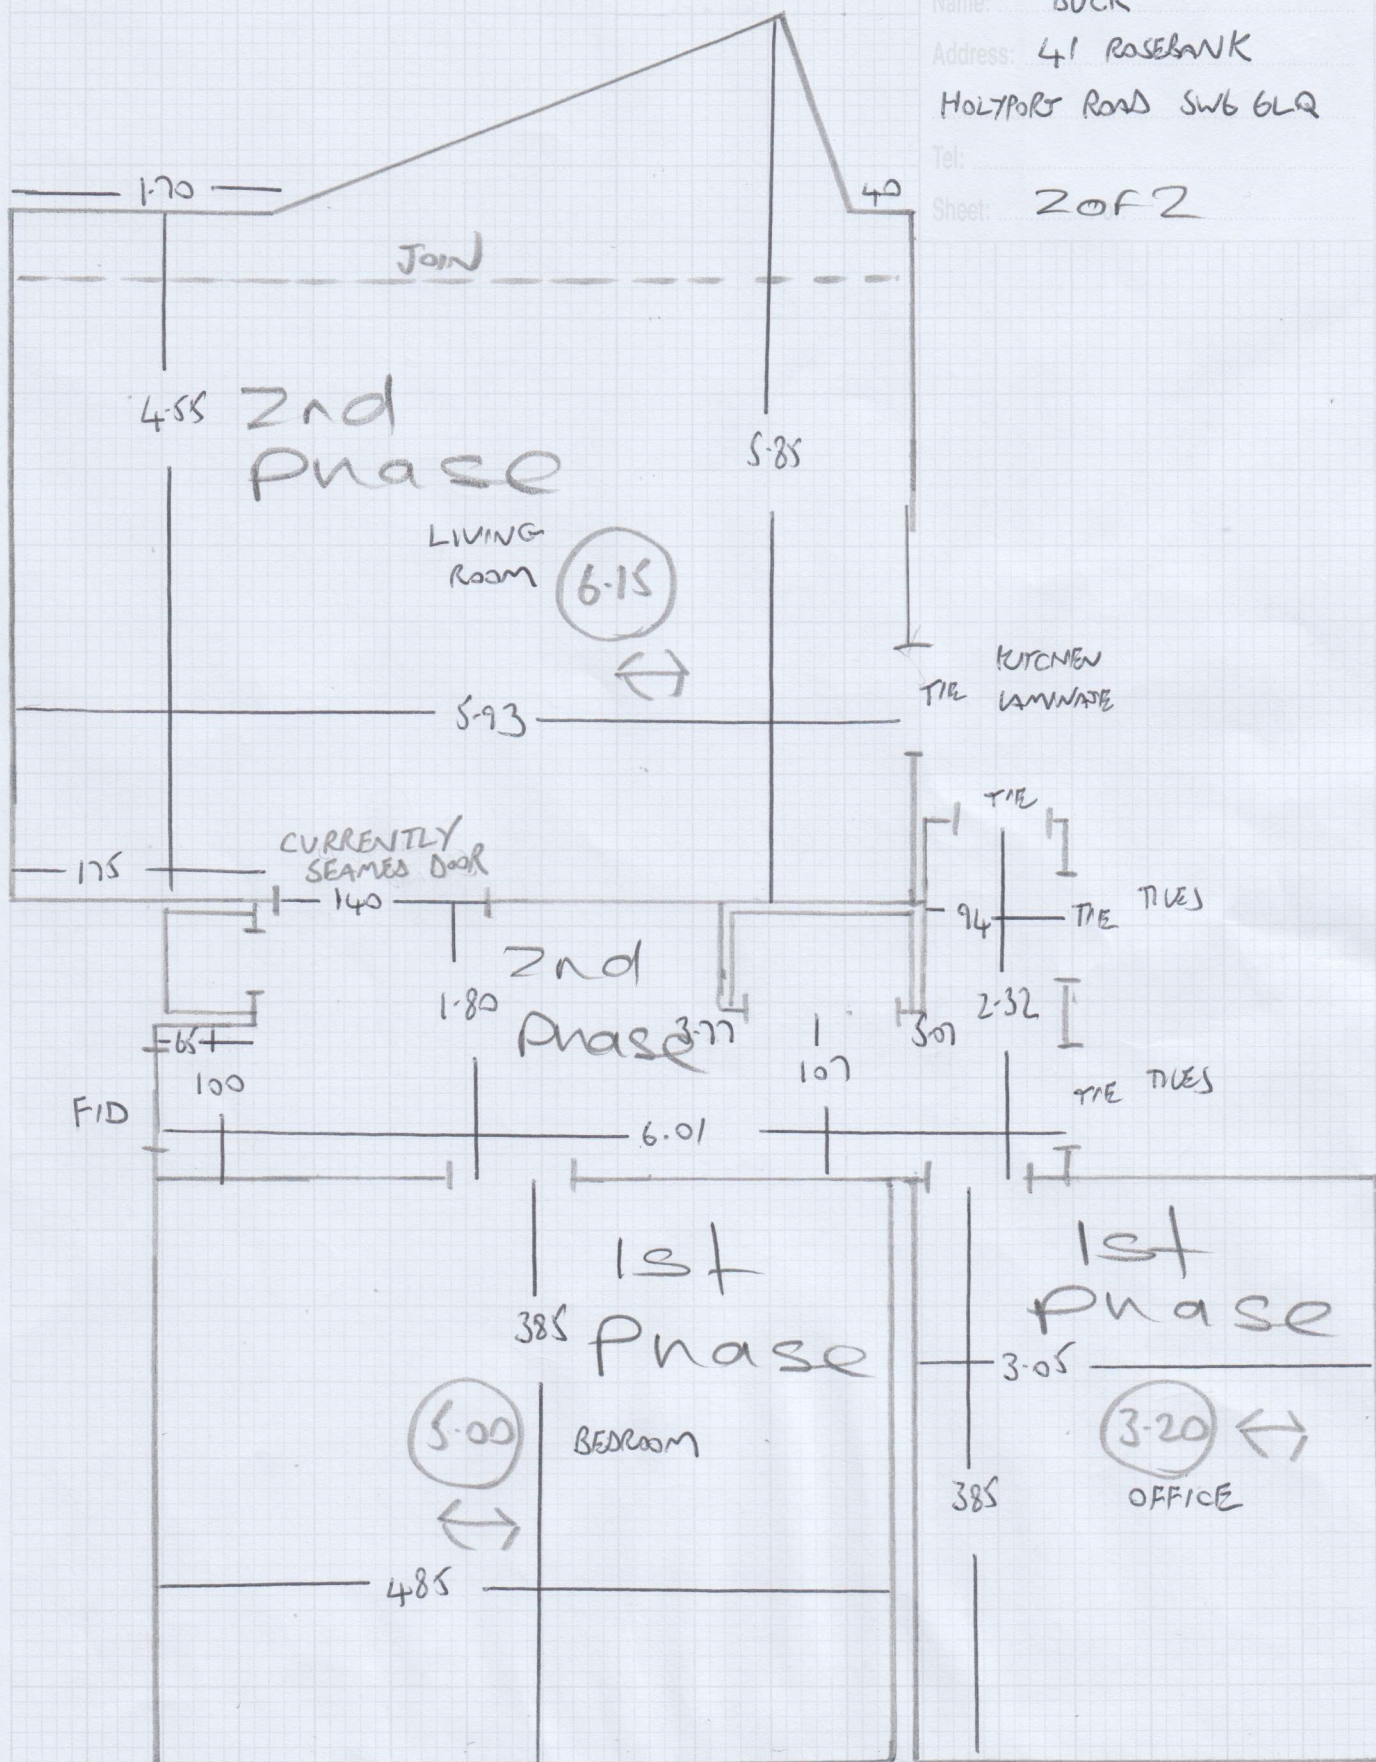 Name: BUCK
Address: 41 ROSEBANK
HOLYPORT ROAD SW6 6LQ
Tel:
Sheet: 2 OF 2
1.70
40
JOIN
4.55
2nd
Phase
5.85
LIVING
ROOM
6.15
5.93
TIE
KITCHEN
LAMINATE
TIE
175
CURRENTLY
SEAMED DOOR
140
94
TIE
TILES
2nd
Phase
1.80
3.77
3.07
2.32
65
100
107
TIE
TILES
F/D
6.01
1st
Phase
385
1st
Phase
3.05
5.00
BEDROOM
3.20
OFFICE
385
485